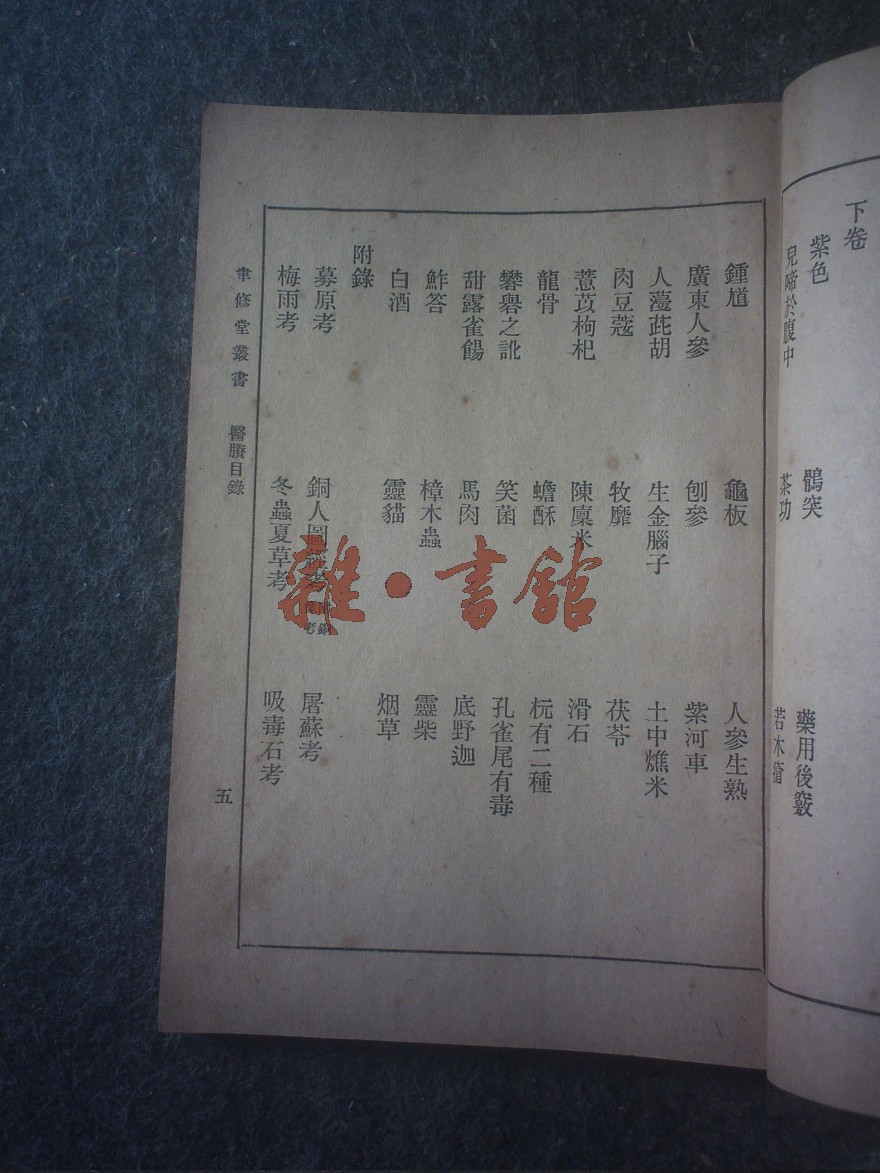 下卷
紫色 鶻突 藥用後竅
兒啼於腹中 茶功 若木瘡
鍾馗 龜板 人參生熟
廣東人參 刨參 紫河車
人薓茈胡 生金腦子 土中燋米
肉豆蔻 牧靡 茯苓
薏苡枸杞 陳廩米 滑石
龍骨 蟾酥 杬有二種
礬礜之訛 笑菌 孔雀尾有毒
甜露雀餳 馬肉 底野迦
鮓答 樟木蟲 靈柴
白酒 靈貓 烟草
附錄
募原考 銅人圖 屠蘇考
梅雨考 冬蟲夏草考 吸毒石考
聿修堂叢書 醫賸目錄 五
雜·書館